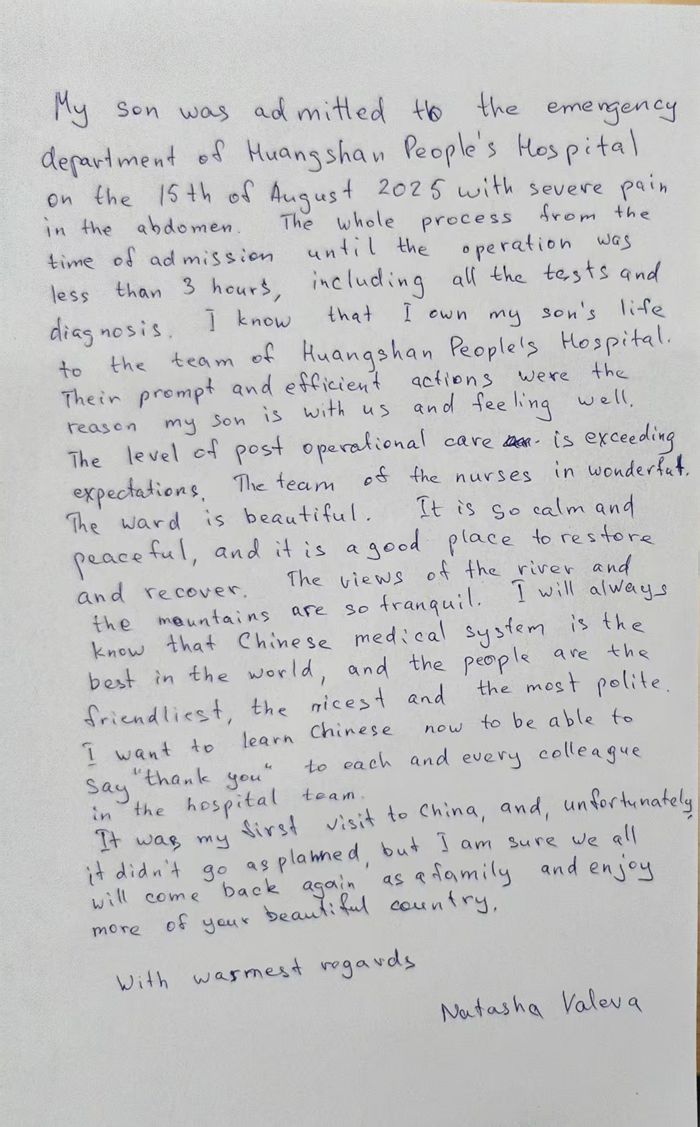 My son was admitted to the emergency
department of Huangshan People's Hospital
on the 15th of August 2025 with severe pain
in the abdomen. The whole process from the
time of admission until the operation was
less than 3 hours, including all the tests and
diagnosis. I know that I own my son's life
to the team of Huangshan People's Hospital.
Their prompt and efficient actions were the
reason my son is with us and feeling well.
The level of post operational care is exceeding
expectations. The team of the nurses in wonderful.
The ward is beautiful. It is so calm and
peaceful, and it is a good place to restore
and recover. The views of the river and
the mountains are so tranquil. I will always
know that Chinese medical system is the
best in the world, and the people are the
friendliest, the nicest and the most polite.
I want to learn Chinese now to be able to
say "thank you" to each and every colleague
in the hospital team.
It was my first visit to China, and, unfortunately,
it didn't go as planned, but I am sure we all
will come back again as a family and enjoy
more of your beautiful country.
With warmest regards
Natasha Valeva